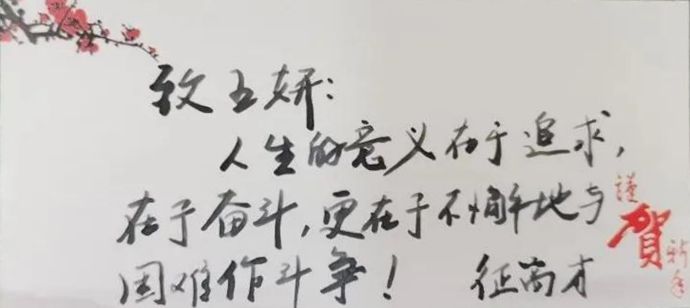 致五妍:
人生的意义在于追求,
在于奋斗,更在于不懈地与
困难作斗争! 征尚才
謹
賀
新年